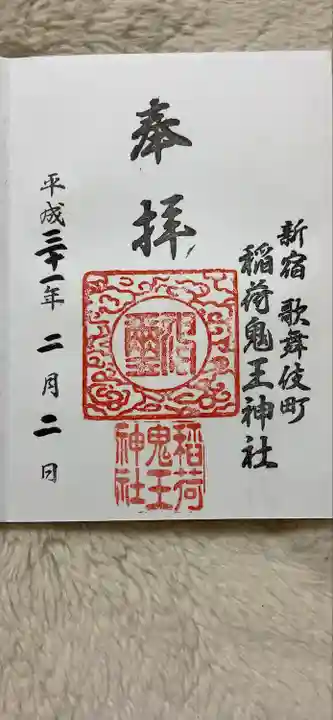 新宿 歌舞伎町
稲荷鬼王神社
奉拝
平成三十一年 二月二日
稲荷
鬼王
神社